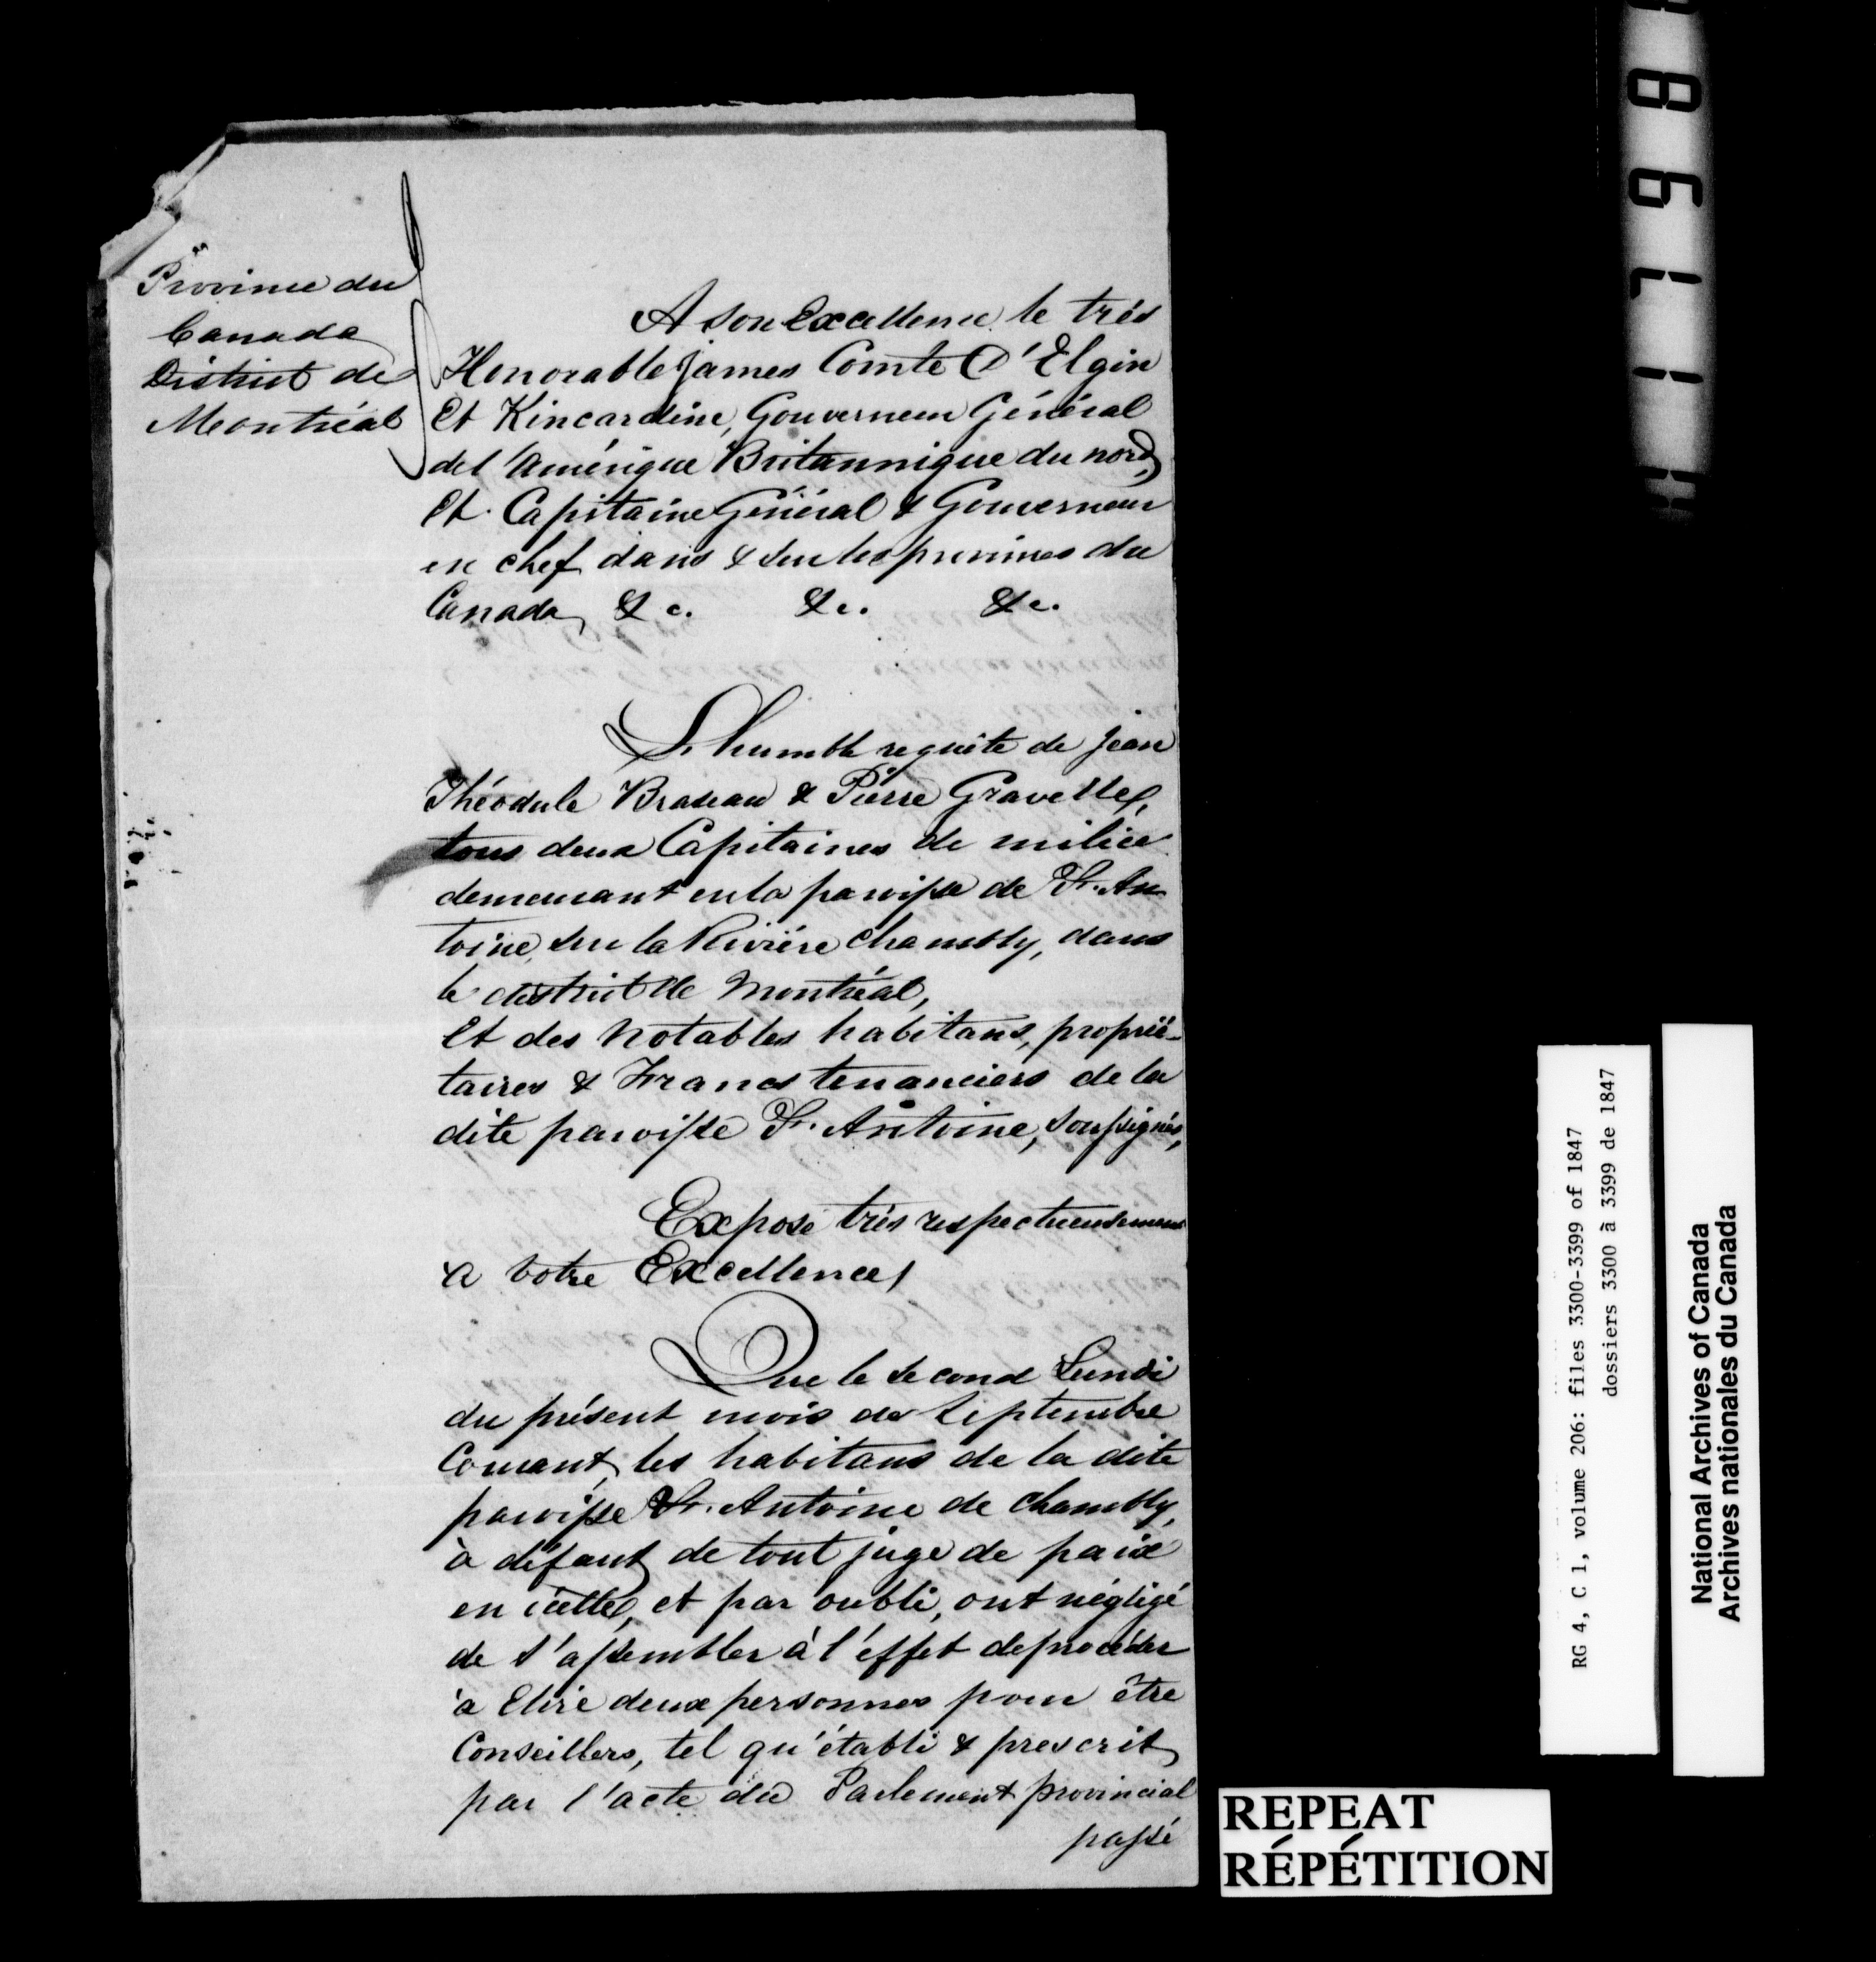 Province du
Canada
District de
Montréal
A Son Excellence le très
Honorable James Comte D'Elgin
Et Kincardine, Gouverneur Général
de l'Amérique Britannique du nord,
Et Capitaine Général & Gouverneur
en chef dans & sur les provinces du
Canada, &c. &c. &c.
L'humble requête de Jean
Théodule Brazeau & Pierre Gravelle,
tous deux Capitaines de milice
demeurant en la paroisse de St. An
toine, sur la Rivière Chambly, dans
le district de Montréal,
Et des notables habitans, proprié-
taires & Francs tenanciers de la
dite paroisse St. Antoine, soussignés,
Expose très respectueusement
a Votre Excellence,
Que le second Lundi
du présent mois de Septembre
Courant, les habitans de la dite
paroisse St. Antoine de Chambly,
à défaut de tout juge de paix
en icelle, et par oubli, ont négligé
de s'assembler à l'effet de procéder
à Elire deux personnes pour être
Conseillers, tel qu'établi & prescrit
par l'acte du Parlement provincial
passé
REPEAT
RÉPÉTITION
RG 4, C 1, volume 206: files 3300-3399 of 1847
dossiers 3300 à 3399 de 1847
National Archives of Canada
Archives nationales du Canada